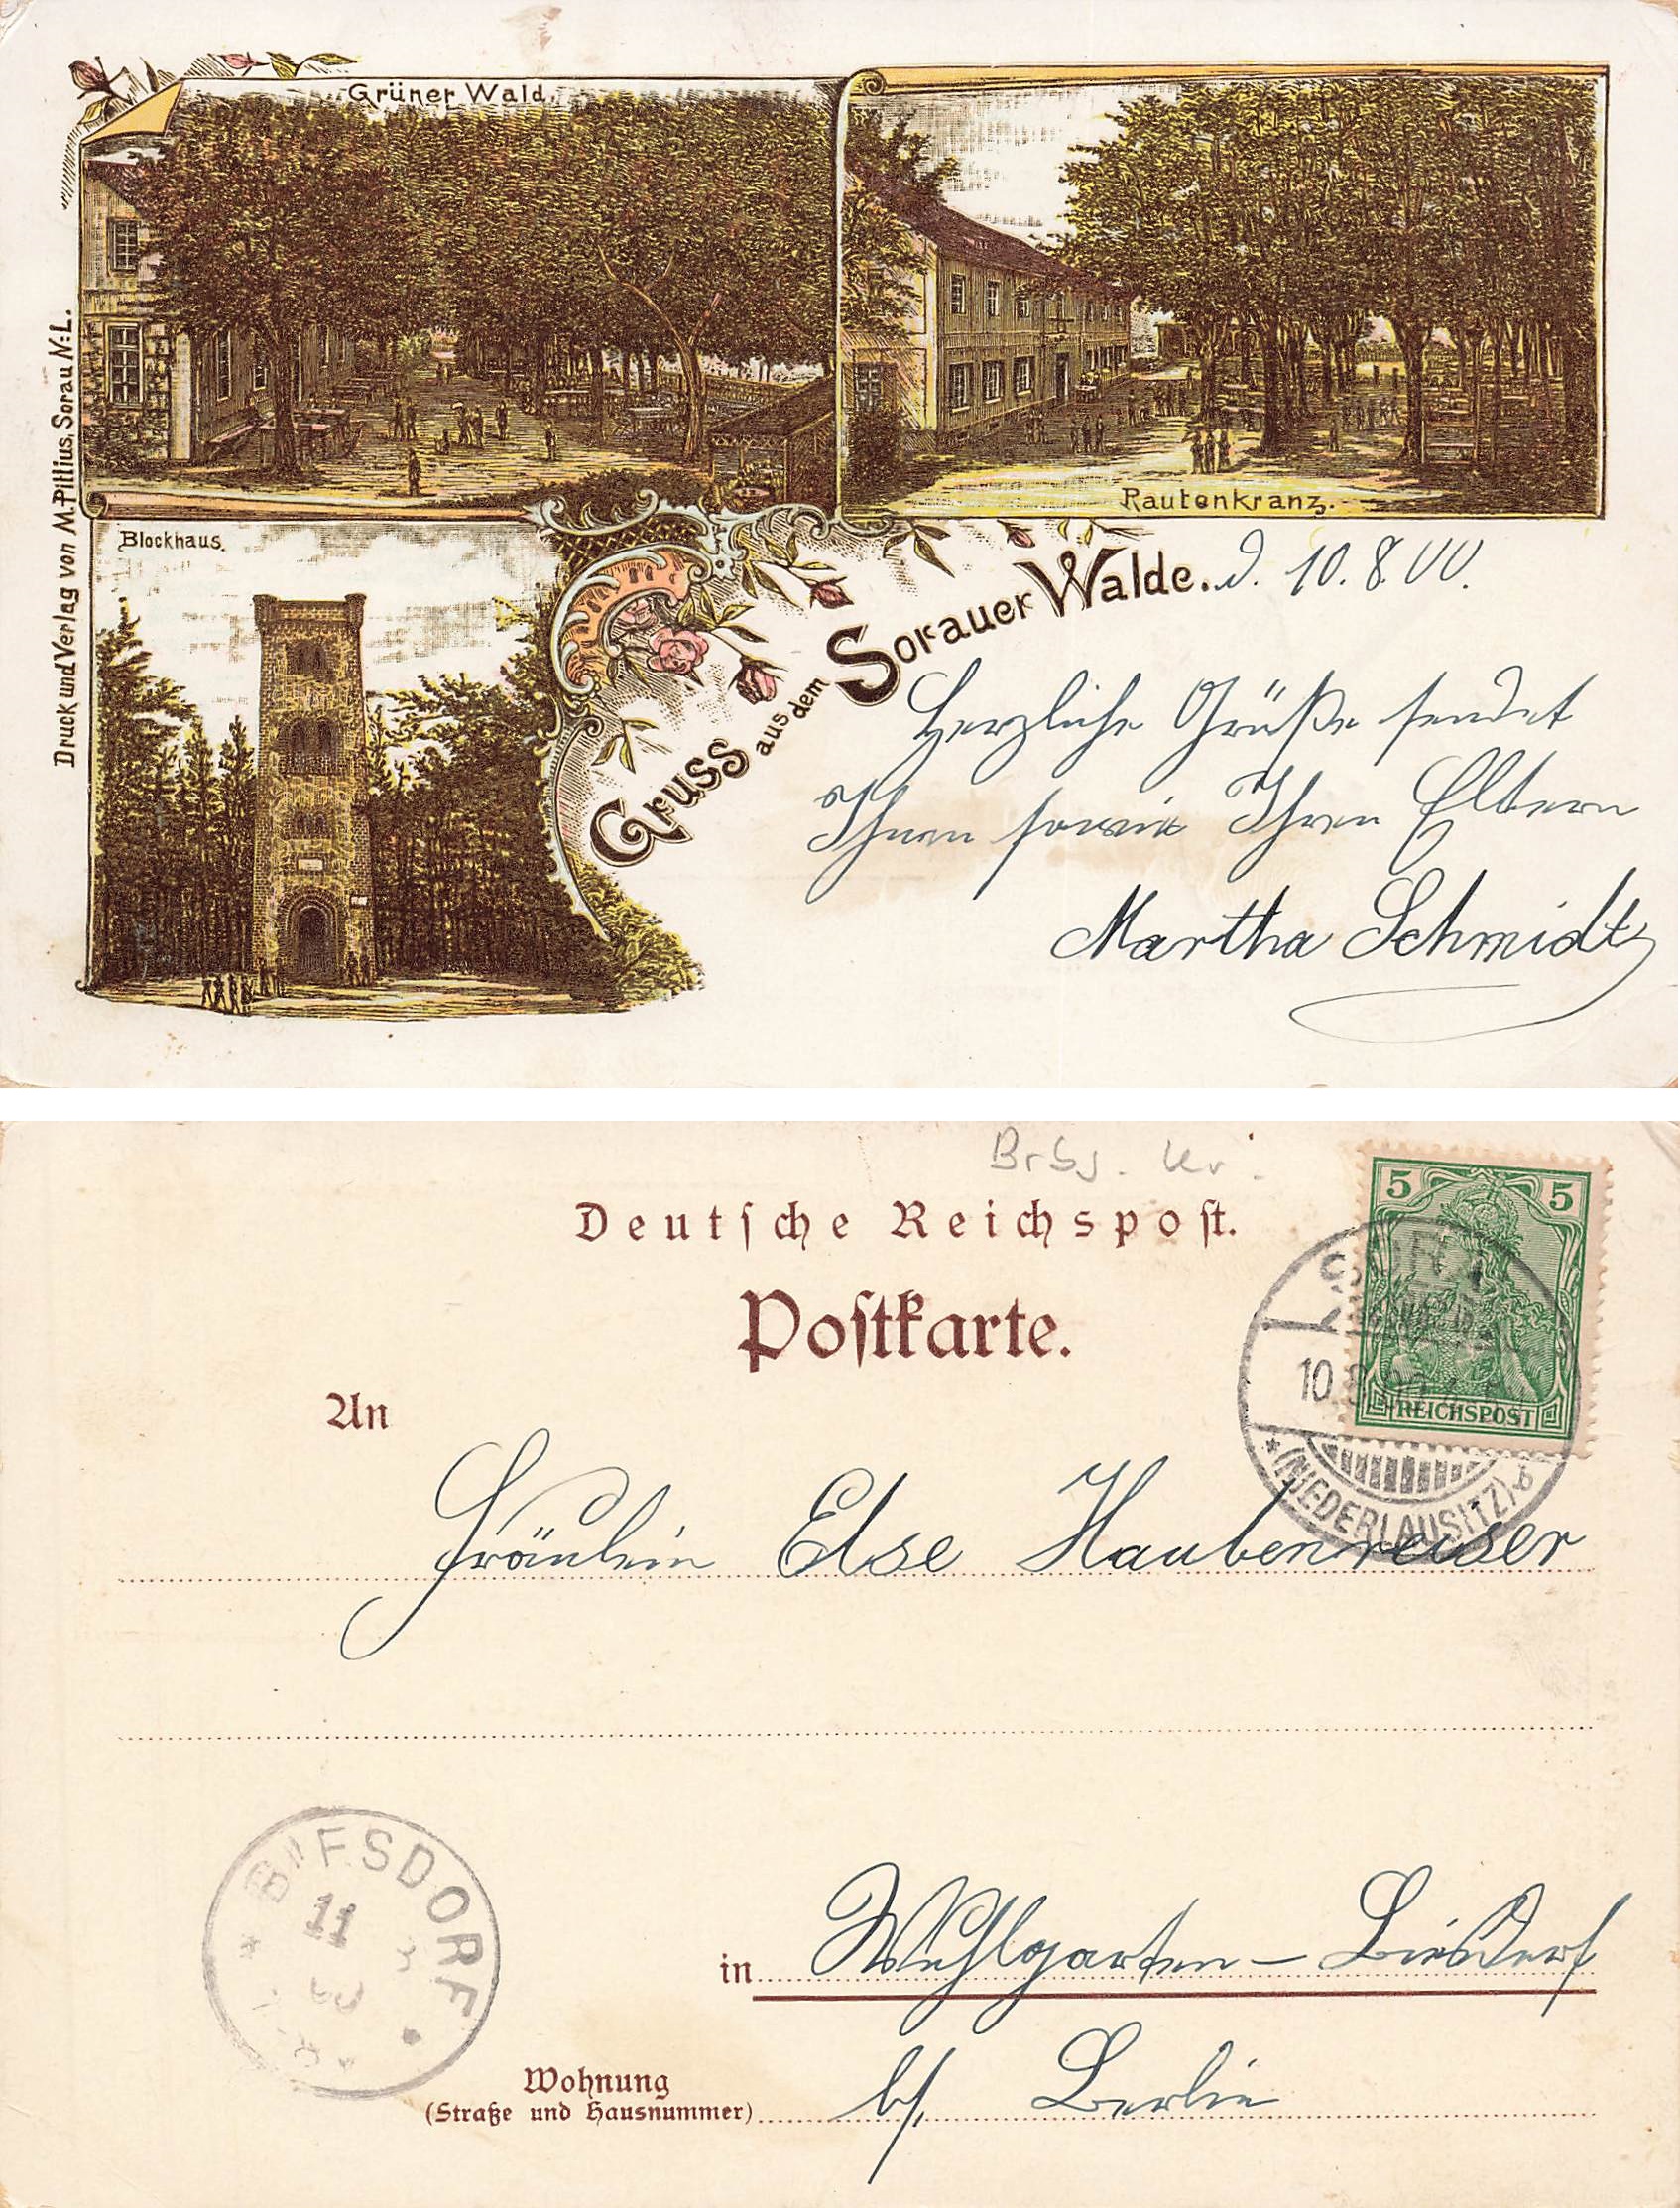 Grüner Wald.
Rautenkranz.
Blockhaus.
Druck und Verlag von M. Pittius, Sorau N.-L.
Gruss aus dem Sorauer Walde.
d. 10. 8. 00.
Herzliche Grüße sendet
Ihnen sowie Ihren Eltern
Martha Schmidt
Deutsche Reichspost.
Postkarte.
5 5
REICHSPOST
10
* (NIEDERLAUSITZ) b
An
Fräulein Else Haubenreiser
BIESDORF
11
8
in Wuhlgarten – Biesdorf
Wohnung
(Straße und Hausnummer)
b/ Berlin